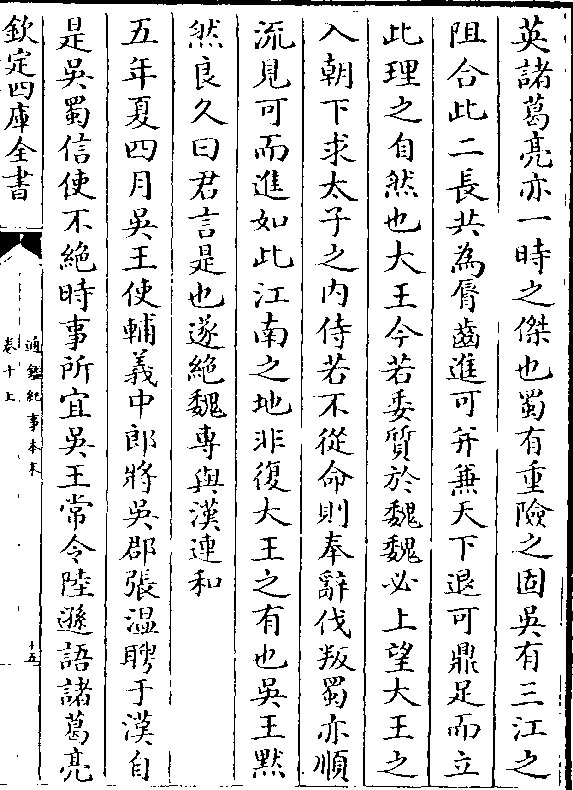 英諸葛亮亦一時之傑也蜀有重險之固吳有三江之
阻合此二長共為脣齒進可并兼天下退可鼎足而立
此理之自然也大王今若委質於魏魏必上望大王之
入朝下求太子之內侍若不從命則奉辭伐叛蜀亦順
流見可而進如此江南之地非復大王之有也吳王默
然良久曰君言是也遂絕魏專與漢連和
五年夏四月吳王使輔義中郎將吳郡張温聘于漢自
是吳蜀信使不絕時事所宜吳王常令陸遜語諸葛亮
欽定四庫全書
通鑑紀事本末
卷十上
十五